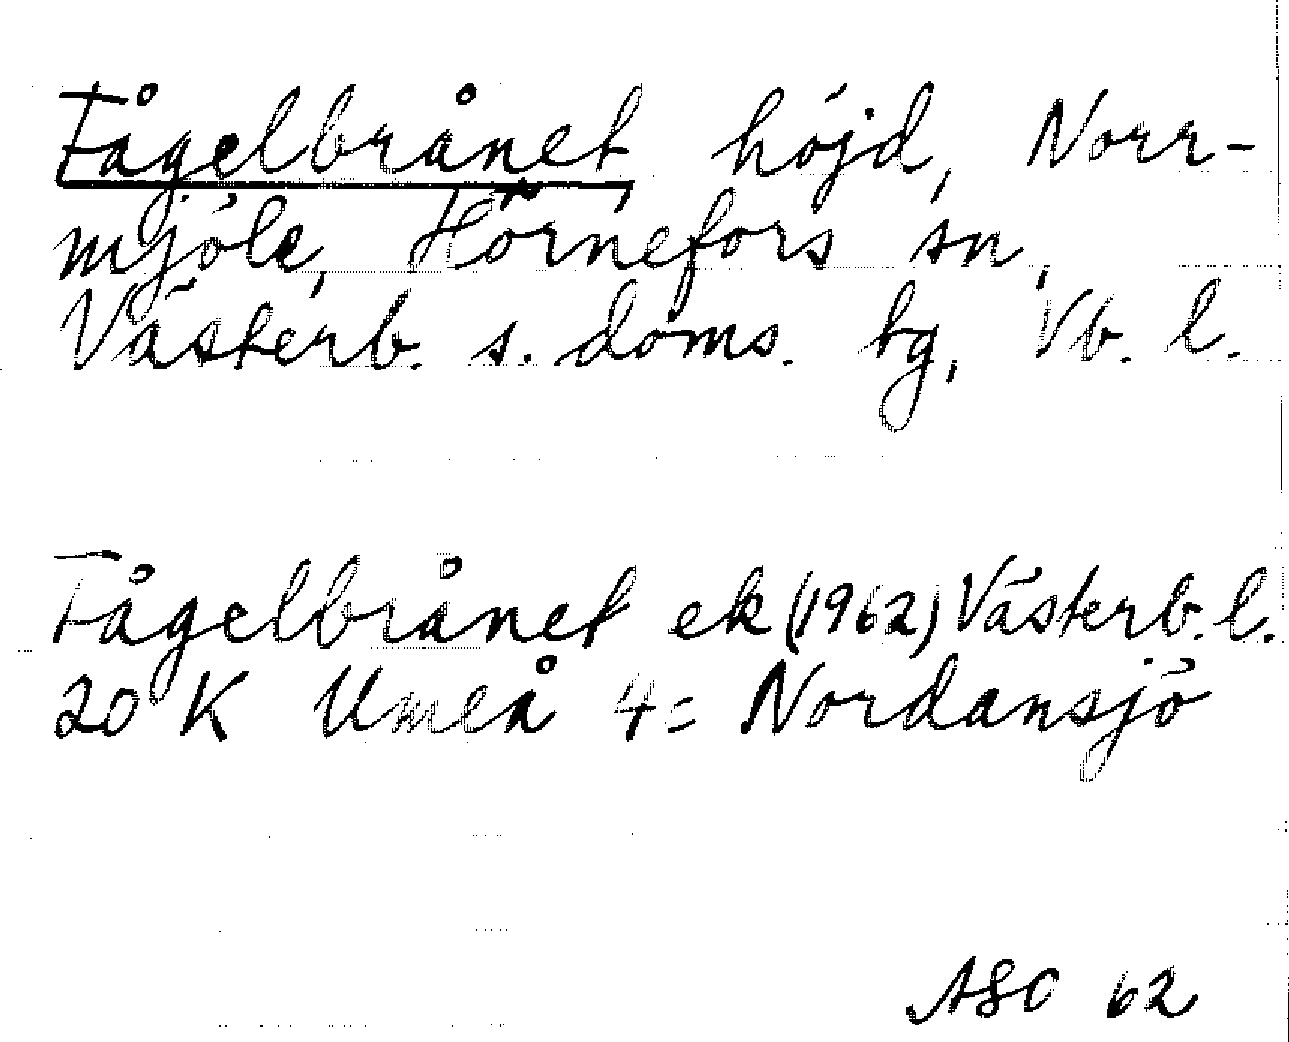 Fågelbrånet, höjd, Norr-
mjöle, Hörnefors sn,
Västerb. s. doms. tg, Vb. l.
Fågelbrånet ek (1962) Västerb. l.
20 K Umeå 4= Nordansjö
ASO 62